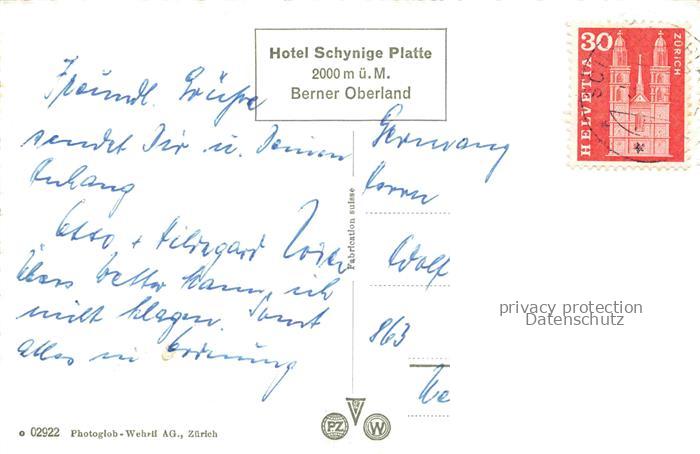 Hotel Schynige Platte
2000 m ü. M.
Berner Oberland
30
HELVETIA
ZÜRICH
Freundl. Grüße
sendet Dir u. Deinen
Anhang
Otto + Hildegard
Übers Wetter kann ich
nicht klagen. Sonst
alles in Ordnung
Germany
Herrn
Wolf
863
We
Fabrication suisse
privacy protection
Datenschutz
02922 Photoglob-Wehrli AG., Zürich
PZ
V
W